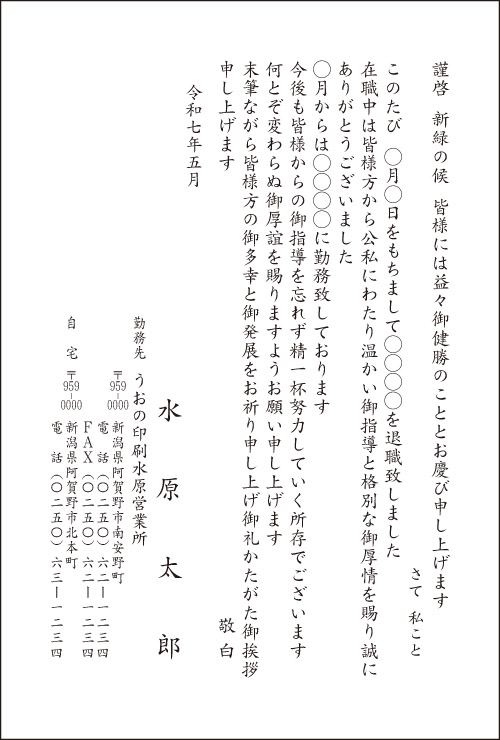 謹啓　新緑の候　皆様には益々御健勝のこととお慶び申し上げます
さて　私こと
このたび　〇月〇日をもちまして〇〇〇〇を退職致しました
在職中は皆様方から公私にわたり温かい御指導と格別な御厚情を賜り誠に
ありがとうございました
〇月からは〇〇〇〇に勤務致しております
今後も皆様からの御指導を忘れず精一杯努力していく所存でございます
何とぞ変わらぬ御厚誼を賜りますようお願い申し上げます
末筆ながら皆様方の御多幸と御発展をお祈り申し上げ御礼かたがた御挨拶
申し上げます
敬白
令和七年五月
水原太郎
勤務先　うおの印刷水原営業所
〒959-0000　新潟県阿賀野市南安野町
電話（〇二五〇）六二ー一二三四
ＦＡＸ（〇二五〇）六二ー一二三四
自宅　〒959-0000　新潟県阿賀野市北本町
電話（〇二五〇）六三ー一二三四